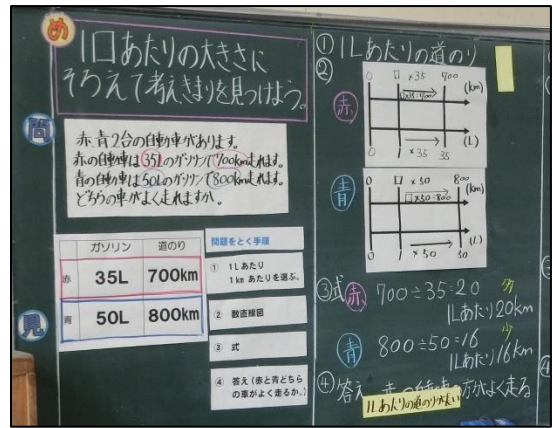 め
1口あたりの大きさに
そろえて考え、きまりを見つけよう。
問
赤、青2台の自動車があります。
赤の自動車は35Lのガソリンで700km走れます。
青の自動車は50Lのガソリンで800km走れます。
どちらの車がよく走れますか。
見
ガソリン 道のり
赤 35L 700km
青 50L 800km
問題をとく手順
① 1Lあたり
1kmあたりを選ぶ。
② 数直線図
③ 式
④ 答え(赤と青どちら
の車がよく走るか。)
① 1Lあたりの道のり
②
赤
0 □ ×35 700
(km)
□×35=700
(L)
0 1 ×35 35
青
0 □ ×50 800
(km)
□×50=800
(L)
0 1 ×50 50
③式 赤 700÷35=20 多
1Lあたり20km
青 800÷50=16 少
1Lあたり16km
④答え 赤の自動車の方がよく走る
1Lあたりの道のりが長い